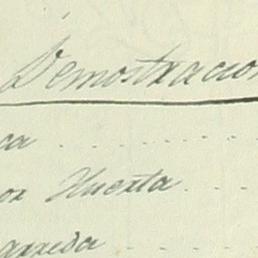 Demostracion
ca
or Huerta
garreda